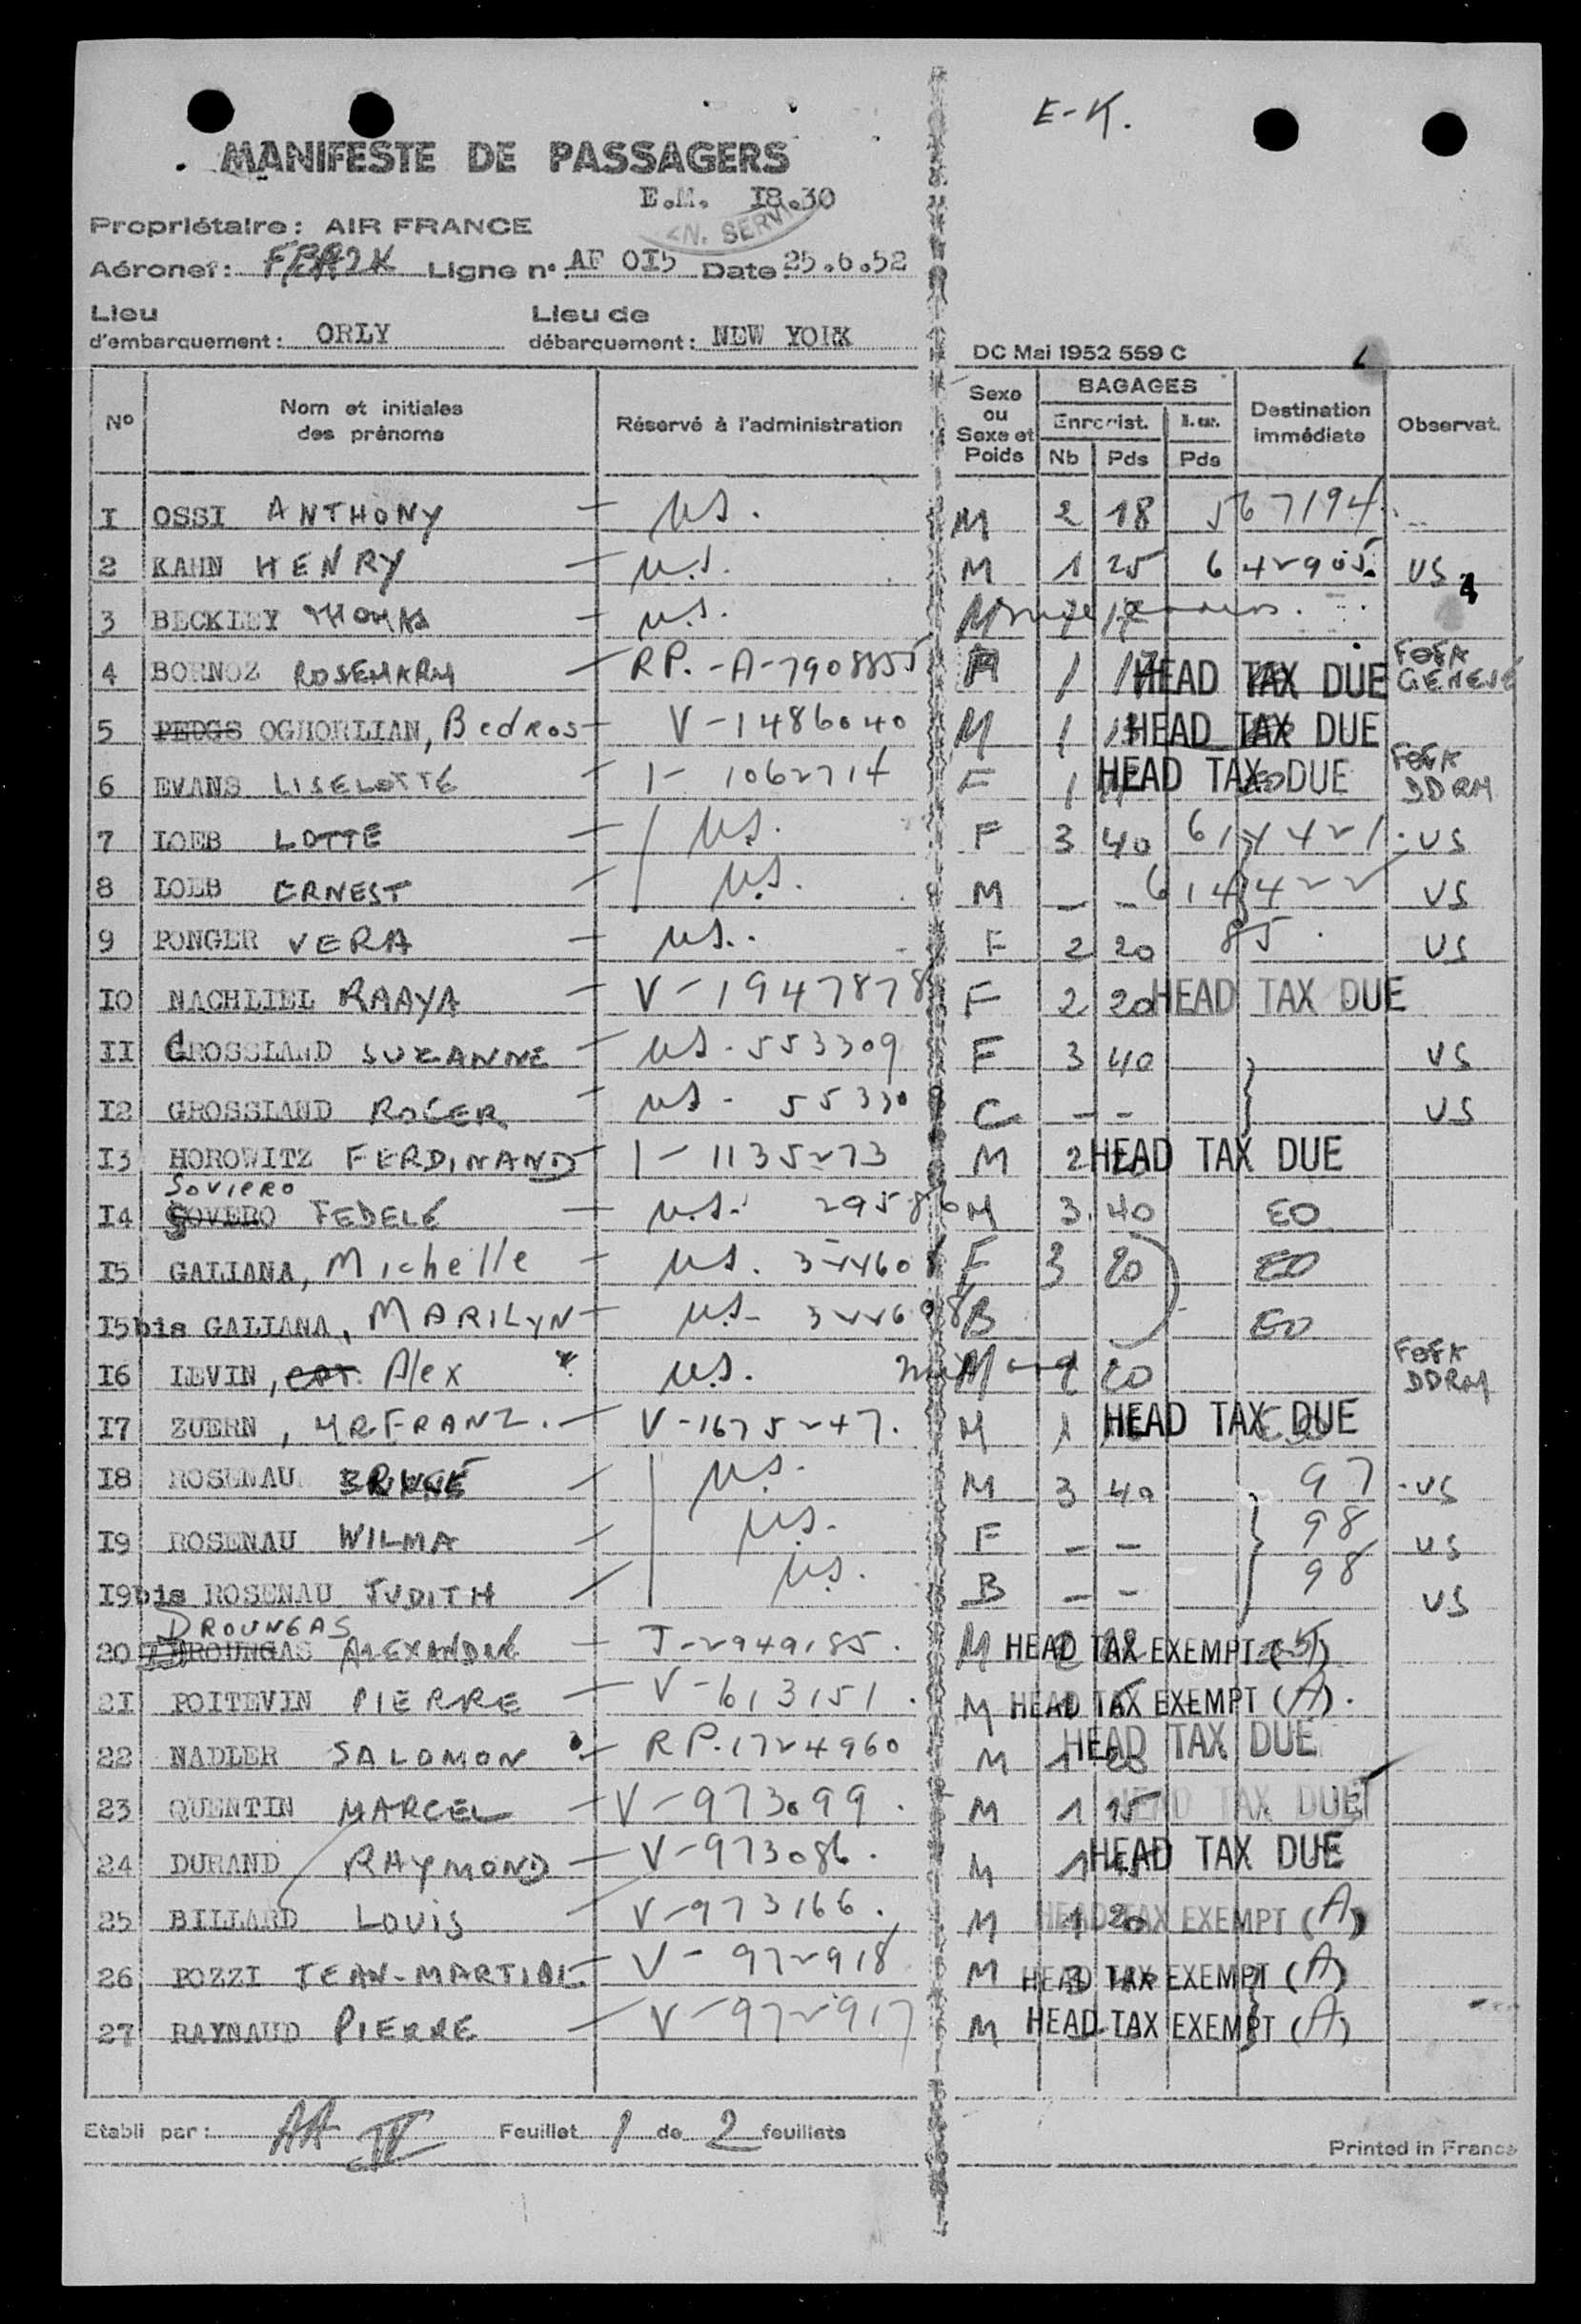 E-K.
MANIFESTE DE PASSAGERS
E.M. I8.30
Propriétaire: AIR FRANCE
Aéronef: Ligne n° AF OI5 Date 25.6.52
Lieu d'embarquement: ORLY Lieu de débarquement: NEW YORK
DC Mai 1952 559 C
N° Nom et initiales des prénoms Réservé à l'administration Sexe ou Sexe et Poids BAGAGES Enregist. Nb Pds Pds Destination immédiate Observat.
I OSSI ANTHONY - US. M 2 18 567194
2 KAHN HENRY - U.S. M 1 25 642905 US
3 BECKLEY THOMAS - U.S. M
4 BORNOZ ROSEMARY - RP.-A-7908855 1 HEAD TAX DUE GENEVE
5 PEDGS OGHORLIAN, Bedros - V-1486040 M 1 HEAD TAX DUE
6 EVANS LISELOTTE - I-1062714 F 1 HEAD TAX DUE DDRM
7 LOEB LOTTE - US. F 3 40 614421 US
8 LOEB ERNEST - US. M - - 614422 US
9 PONGER VERA - US. F 2 20 85 US
IO NACHLIEL RAAYA - V-1947878 F 2 20 HEAD TAX DUE
II CROSSLAND SUZANNE - US-553309 F 3 40 US
I2 GROSSLAND ROGER - US- 55330 C - - US
I3 HOROWITZ FERDINAND - I-1135273 M 2 HEAD TAX DUE
SOVIERO
I4 SOVERO FEDELE - U.S. 29586 M 3 40 EO
I5 GALIANA, Michelle - US. F 3 20 EO
I5bis GALIANA, MARILYN - U.S- B EO
I6 LEVIN, Alex U.S. M 20 DDRM
I7 ZUERN, MR FRANZ. - V-1675247. M 1 HEAD TAX DUE
I8 ROSENAU - US. M 3 40 97 US
I9 ROSENAU WILMA - US. F - - 98 US
I9bis ROSENAU JUDITH - US. B - - 98 US
DROUNGAS
20 ALEXANDRE - 2949185. M HEAD TAX EXEMPT
2I POITEVIN PIERRE - V-613151. M HEAD TAX EXEMPT (A).
22 NADLER SALOMON - RP.1724960 M 1 20 HEAD TAX DUE
23 QUENTIN MARCEL - V-973099. M 1 15 HEAD TAX DUE
24 DURAND RAYMOND - V-973086. M 1 HEAD TAX DUE
25 BILLARD LOUIS - V-973166. M 1 20 HEAD TAX EXEMPT (A)
26 POZZI JEAN-MARTIAL - V-972918 M HEAD TAX EXEMPT (A)
27 RAYNAUD PIERRE - V-972917 M HEAD TAX EXEMPT (A)
Etabli par: AA IV Feuillet 1 de 2 feuillets
Printed in France